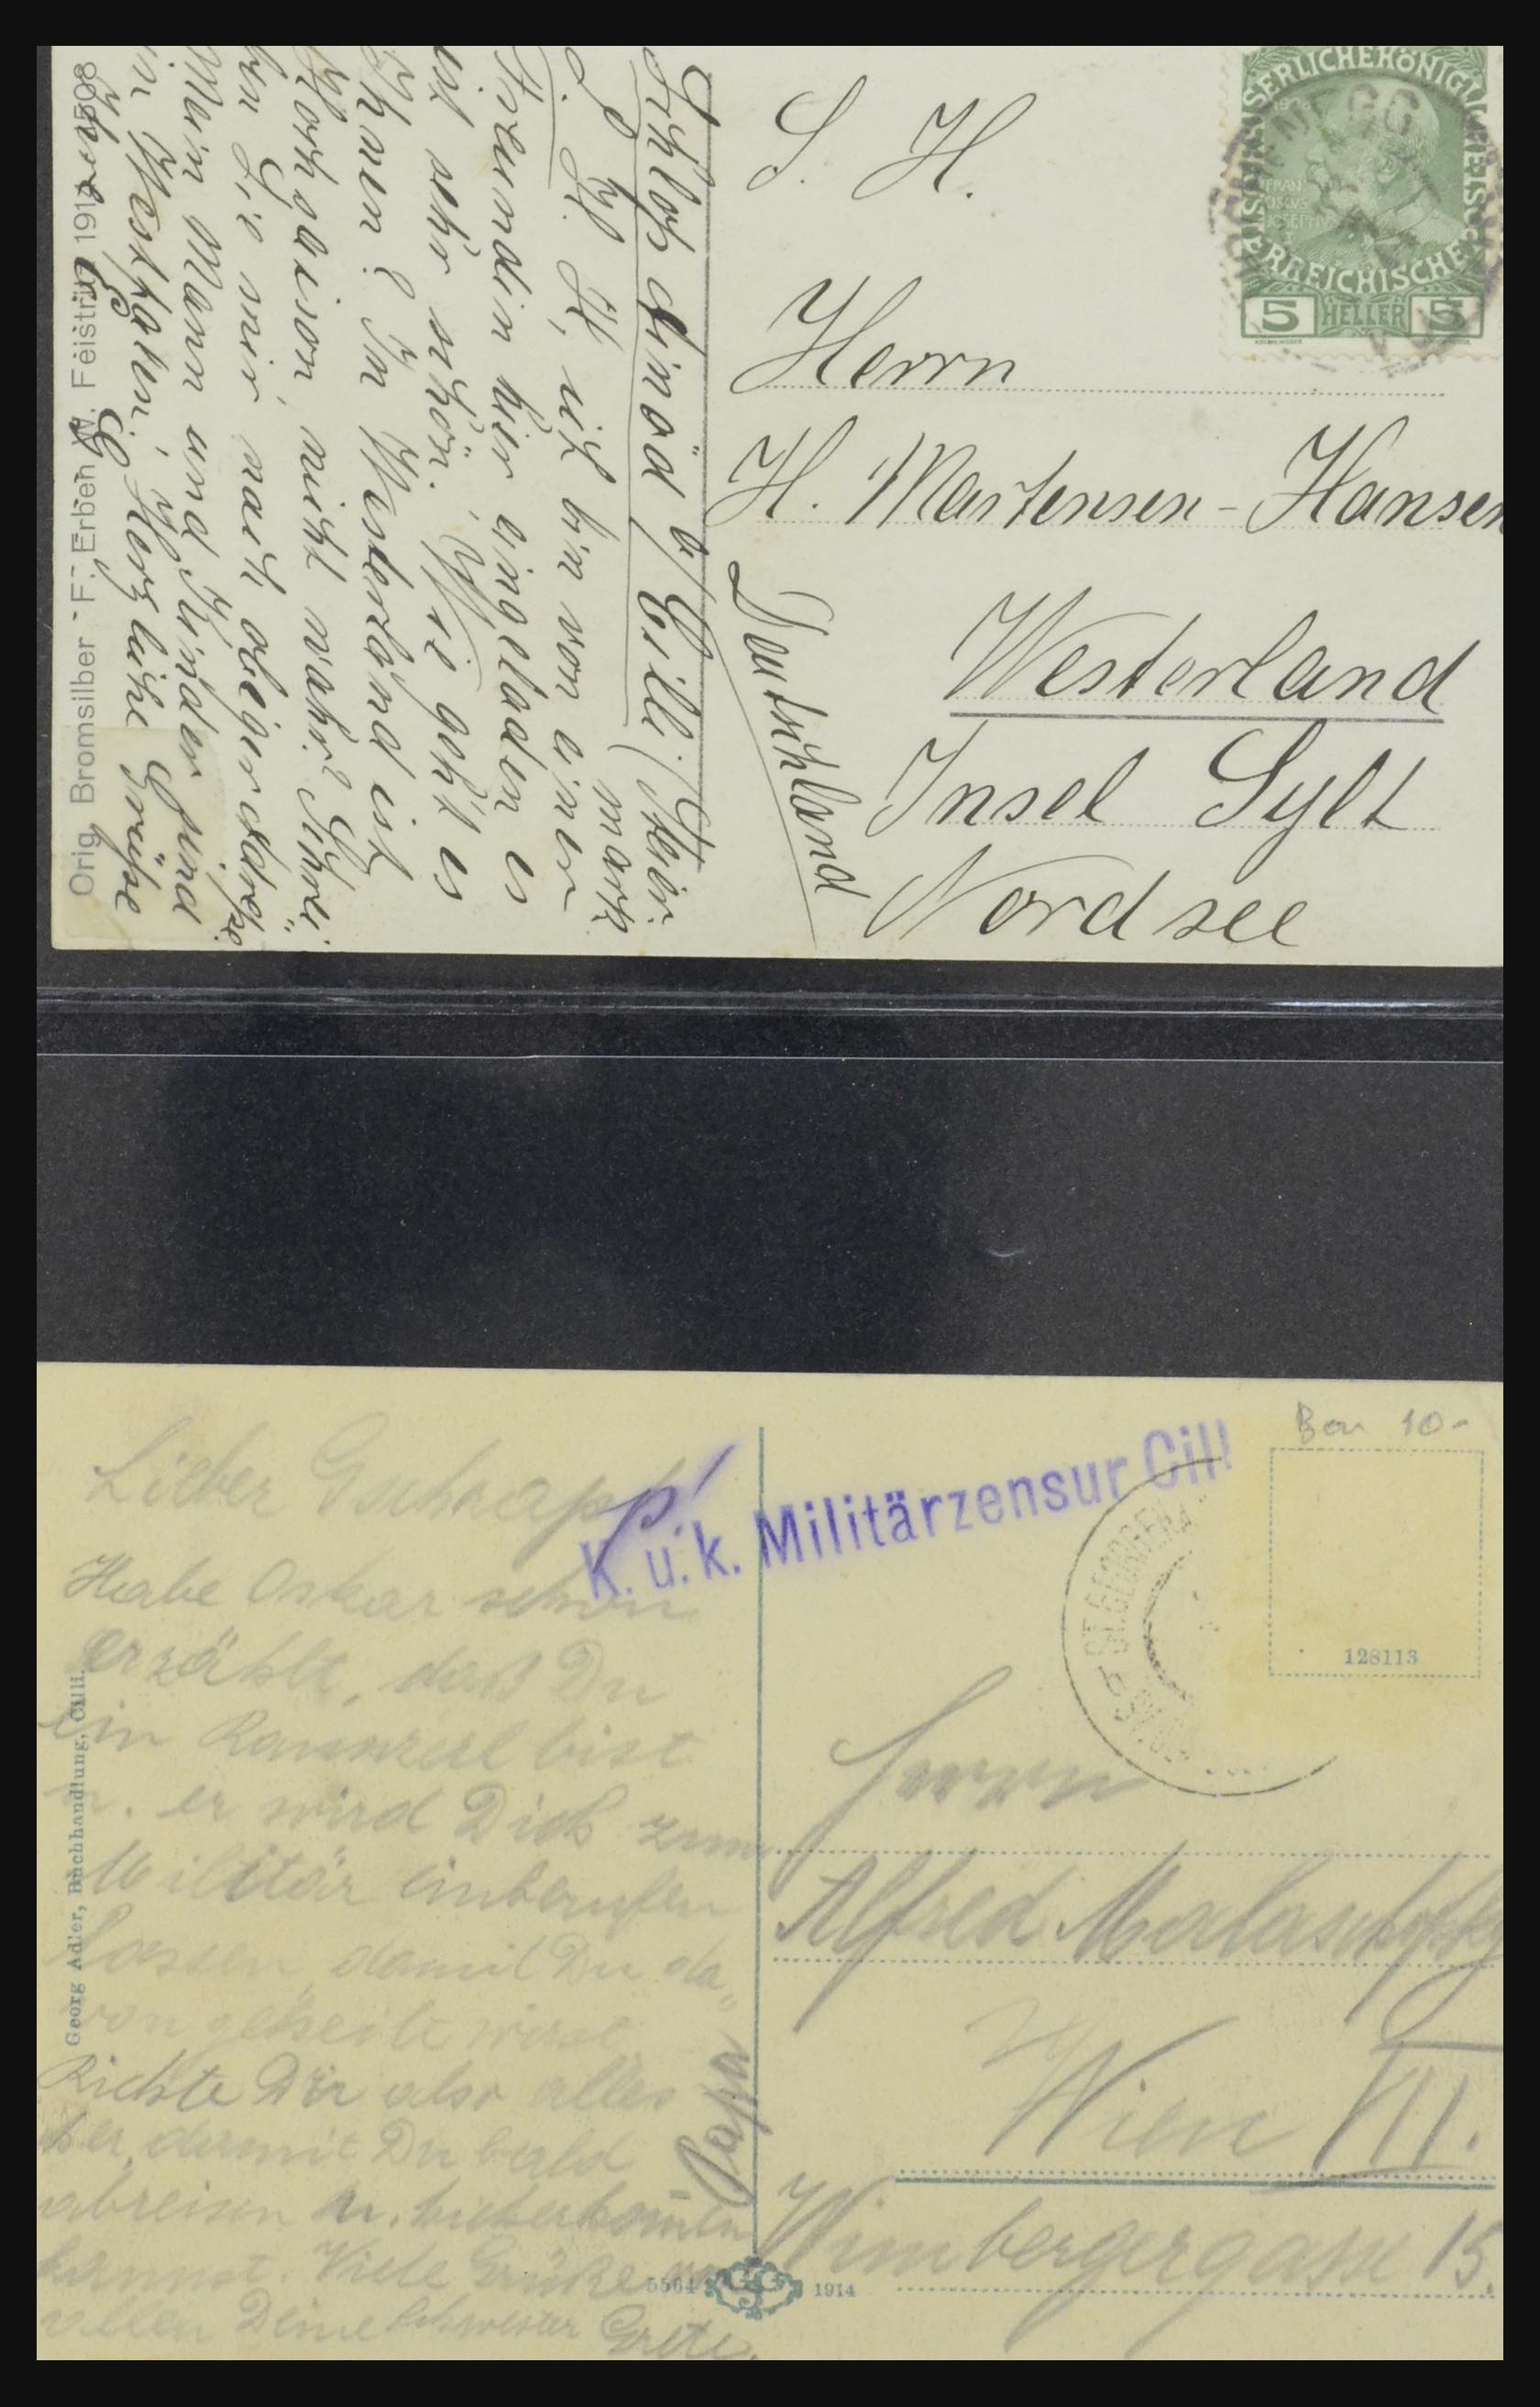 Schloss Einöd b/ Cilli (Steier-
mark
S. H. H, ich bin von einer
Freundin hier eingeladen es
ist sehr schön. Wie geht es
Ihnen? In Westerland ist
Hochsaison, nicht wahr? Schrei-
ben Sie mir nach obiger Adresse.
Mein Mann und Kinder sind
in Westfalen. Herzliche Grüße
Orig. Bromsilber F. Erben W. Feistritz 1912 1508
S. H.
Herrn
H. Martensen-Hansen
Westerland
Insel Sylt
Nordsee
Deutschland
SERLICHEKÖNIGLICHE
1908
FRAN
CISCVS
IOSEPHVS
ERREICHISCHE
5 HELLER 5
Lieber Gschrapp!
Habe Oskar schon
erzählt, daß Du
ein Raunzerl bist
u. er wird Dich zum
Militär einberufen
lassen, damit Du da„
von geheilt wirst.
Richte Dir also alles
her, damit Du bald
abreisen u. hieherkommen
kannst. Viele Grüße
allen Deine Schwester Grete.
Papa
Georg Adler, Buchhandlung, Cilli.
K. u. k. Militärzensur Cilli
Ben 10-
128113
ST. GEORGEN A
Herrn
Alfred
Wien VII.
Wimbergergasse 15.
5564
1914